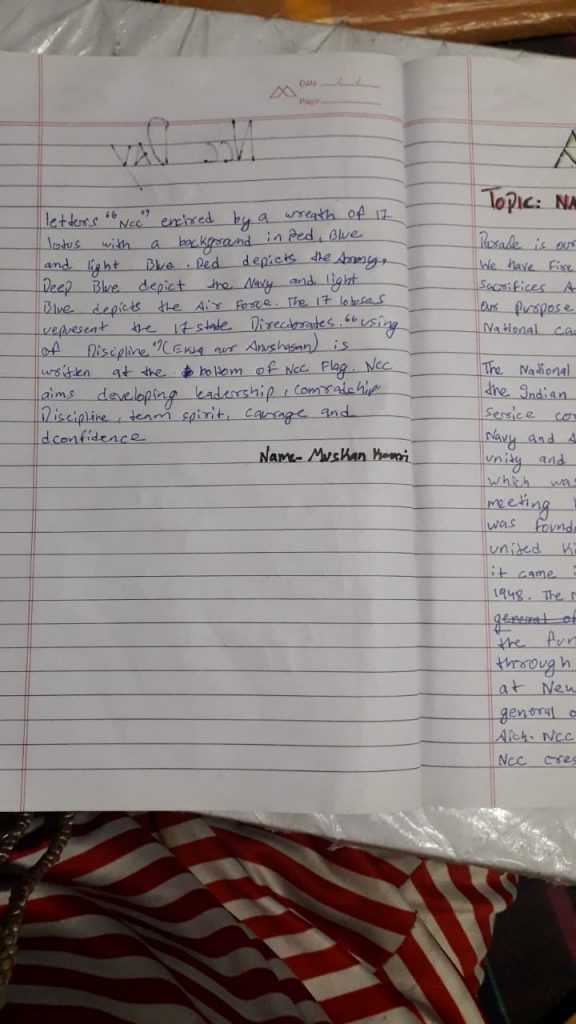 Date / /
Page
NCC DAY
letters "NCC" encired by a wreath of 17
lotus with a background in Red, Blue
and light Blue. Red depicts the Army,
Deep Blue depict the Navy and light
Blue depicts the Air Force. The 17 lotuses
vepresent the 17 state Directorates. "using
of Discipline" (Ekta aur Anushasan) is
written at the bottom of NCC Flag. NCC
aims developing leadership, comradship
Discipline, team spirit, caurage and
dconfidence
Name- Muskan Kumari
TOPIC: NA
Parade is our
We have Fire
Sacrifices A
our purpose
National cad
The National
the Indian
Service cor
Navy and A
unity and
which was
meeting
was found
united Ki
it came i
1948. The
general of
the fun
through
at New
general o
Aich. NCC
NCC cres